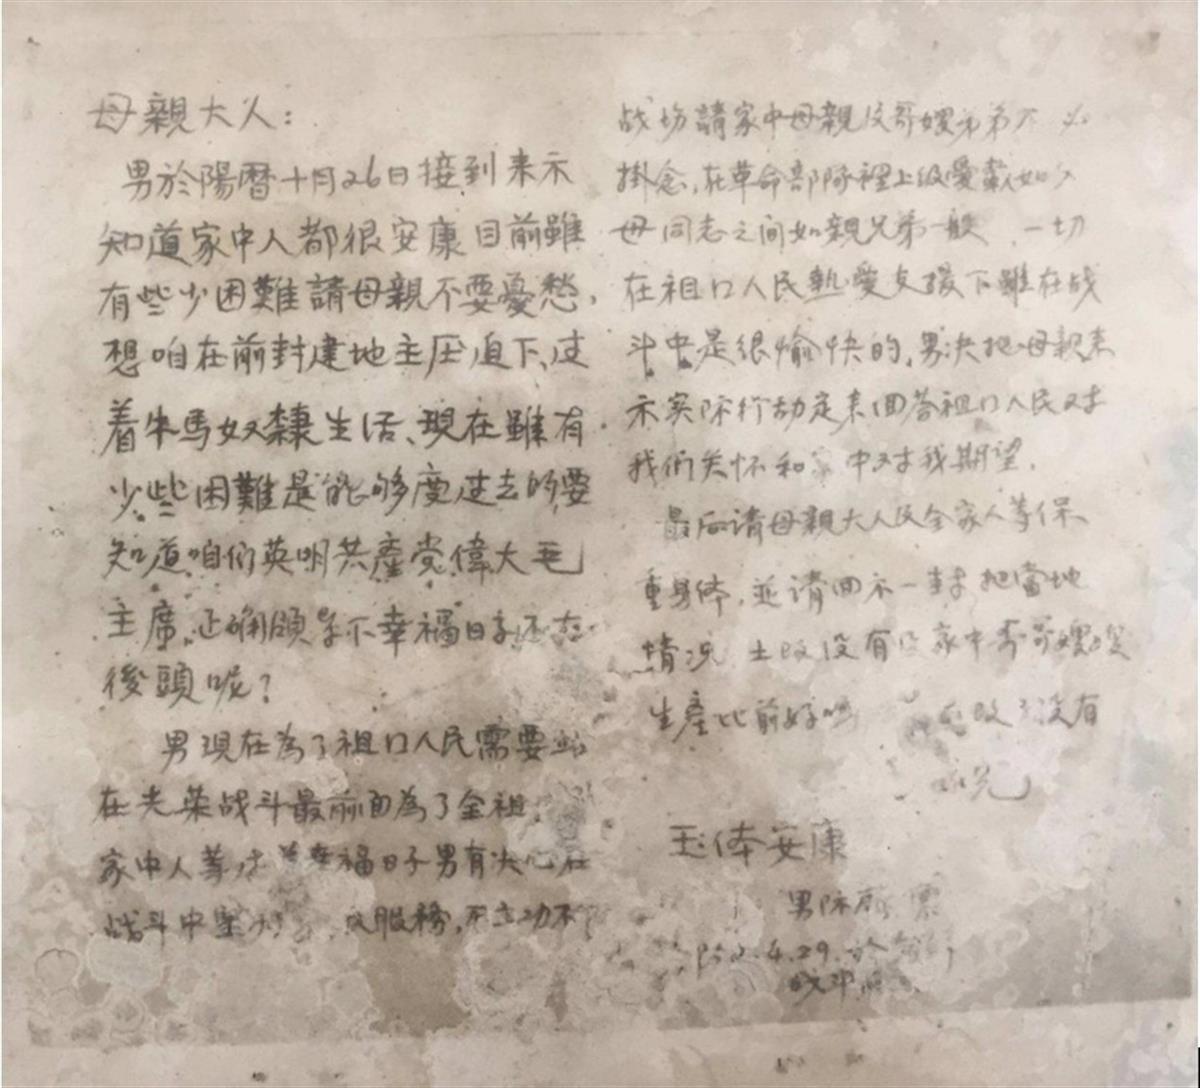 母親大人：
男於陽曆十月26日接到来示
知道家中人都很安康目前雖
有些少困難請母親不要憂愁，
想咱在前封建地主压迫下、过
着牛馬奴隸生活、現在雖有
少些困難是能够度过去的要
知道咱们英明共產党偉大毛
主席，正确領导下幸福日子还在
後頭呢？
男現在為了祖口人民需要站
在光荣战斗最前面為了全祖
家中人等 幸福日子男有决心在
战斗中坚 服務，不立功不
战场請家中母親及哥嫂弟弟不必
掛念，在革命部隊裡上级愛戴如父
母同志之间如親兄弟一般 一切
在祖口人民熱愛支援下雖在战
斗中是很愉快的，男决把母親来
示实际行动定来回答祖口人民对
我們关怀和家中对我期望．
最后請母親大人及全家人等保
重身体，並请回示一封把當地
情况 土改没有 家中 哥嫂
生產比前好吗 改了没有
玉体安康
男
4.29．於